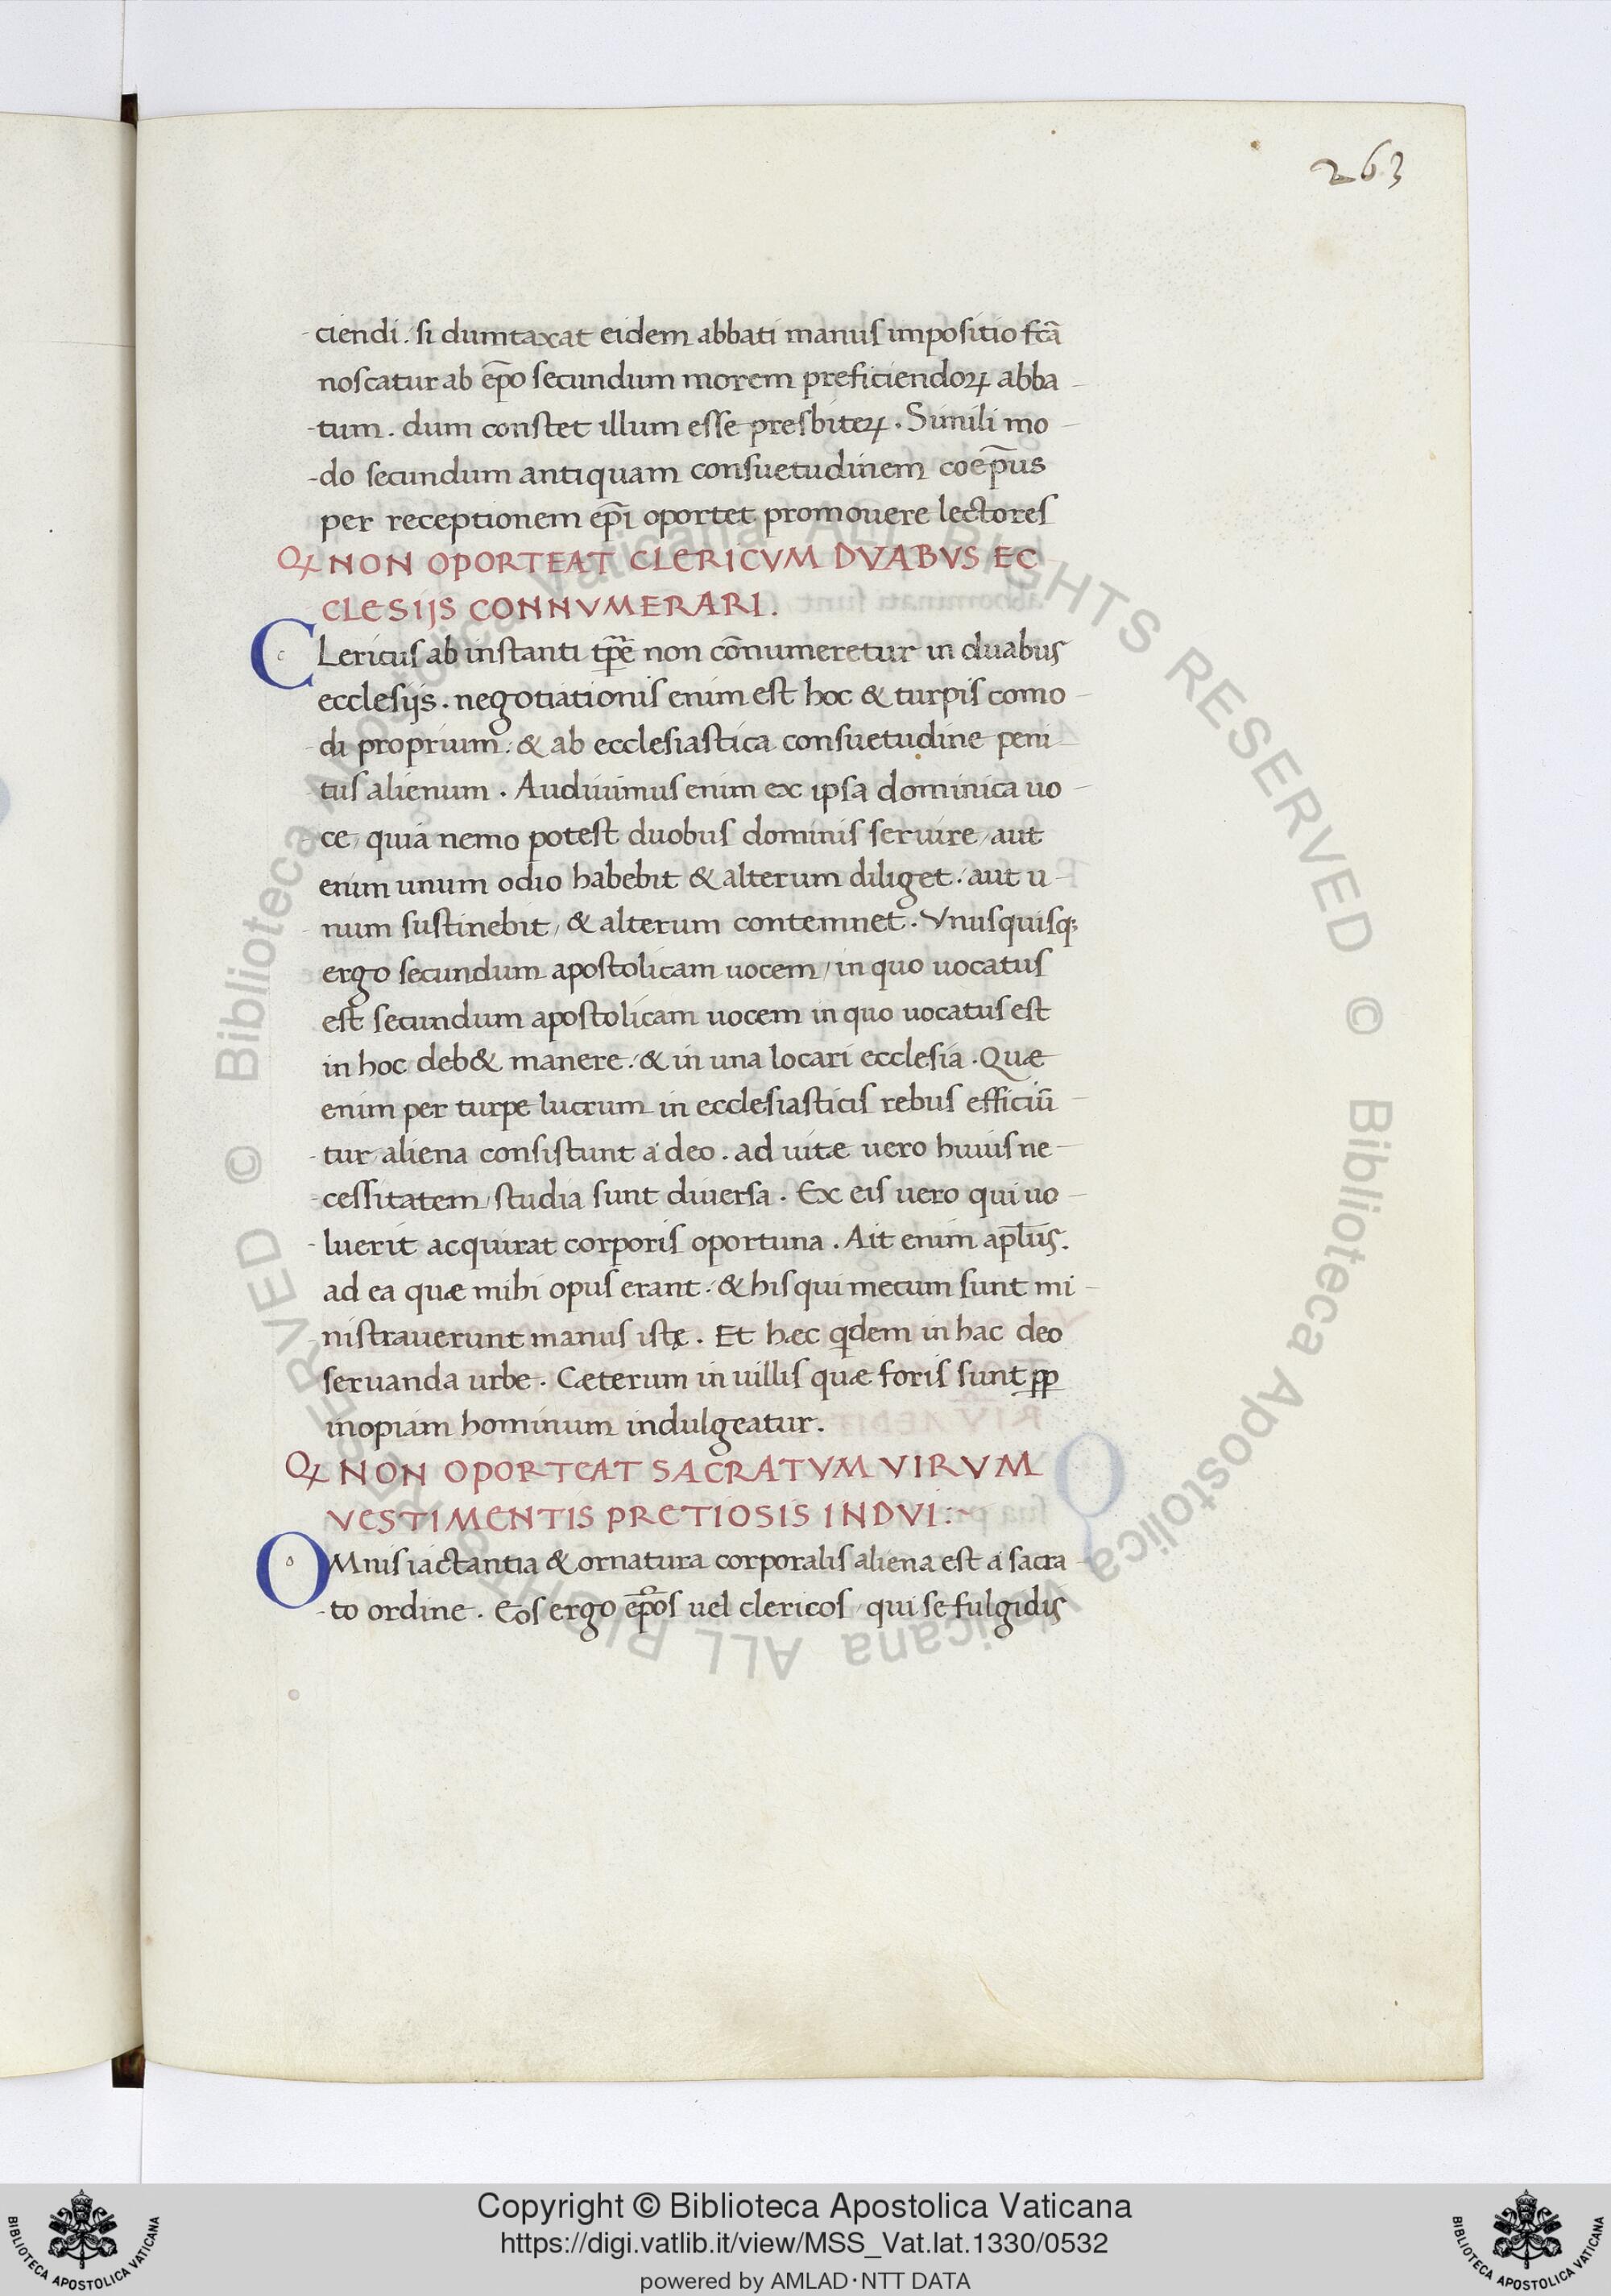 263
ciendi. si dumtaxat eidem abbati manus impositio fcã
noscatur ab ep̃o secundum morem preficiendoꝝ abba-
tum. dum constet illum esse presbiteꝝ. Simili mo-
do secundum antiquam consuetudinem coep̃us
per receptionem ep̃i oportet promouere lectores
Qꝭ NON OPORTEAT CLERICVM DVABVS EC-
CLESIJS CONNVMERARI.
CLericus ab instanti tp̃rẽ non cõnumeretur in duabus
ecclesijs. negotiationis enim est hoc & turpis como-
di proprium. & ab ecclesiastica consuetudine peni-
tus alienum. Audiuimus enim ex ipsa dominica uo-
ce, quia nemo potest duobus dominis seruire, aut
enim unum odio habebit & alterum diliget. aut u-
num sustinebit, & alterum contemnet. Vnusquisq;
ergo secundum apostolicam uocem, in quo uocatus
est secundum apostolicam uocem in quo uocatus est
in hoc deb& manere. & in una locari ecclesia. Quæ
enim per turpe lucrum in ecclesiasticis rebus efficiũ-
tur aliena consistunt a deo. ad uitæ uero huius ne-
cessitatem, studia sunt diuersa. Ex eis uero qui uo-
luerit acquirat corporis oportuna. Ait enim apl̃us.
ad ea quæ mihi opus erant. & his qui mecum sunt mi-
nistrauerunt manus istę. Et hæc qdem in hac deo
seruanda urbe. Cæterum in uillis quæ foris sunt ꝓꝑ
inopiam hominum indulgeatur.
Qꝭ NON OPORTEAT SACRATVM VIRVM
VESTIMENTIS PRETIOSIS INDVI:~
OMnis iactantia & ornatura corporalis aliena est a sacra-
to ordine. Eos ergo ep̃os uel clericos, qui se fulgidis
© Biblioteca Apostolica Vaticana ALL RIGHTS RESERVED © Biblioteca Apostolica Vaticana ALL RIGHTS RESERVED
Copyright © Biblioteca Apostolica Vaticana
https://digi.vatlib.it/view/MSS_Vat.lat.1330/0532
powered by AMLAD·NTT DATA
BIBLIOTECA APOSTOLICA VATICANA
BIBLIOTECA APOSTOLICA VATICANA